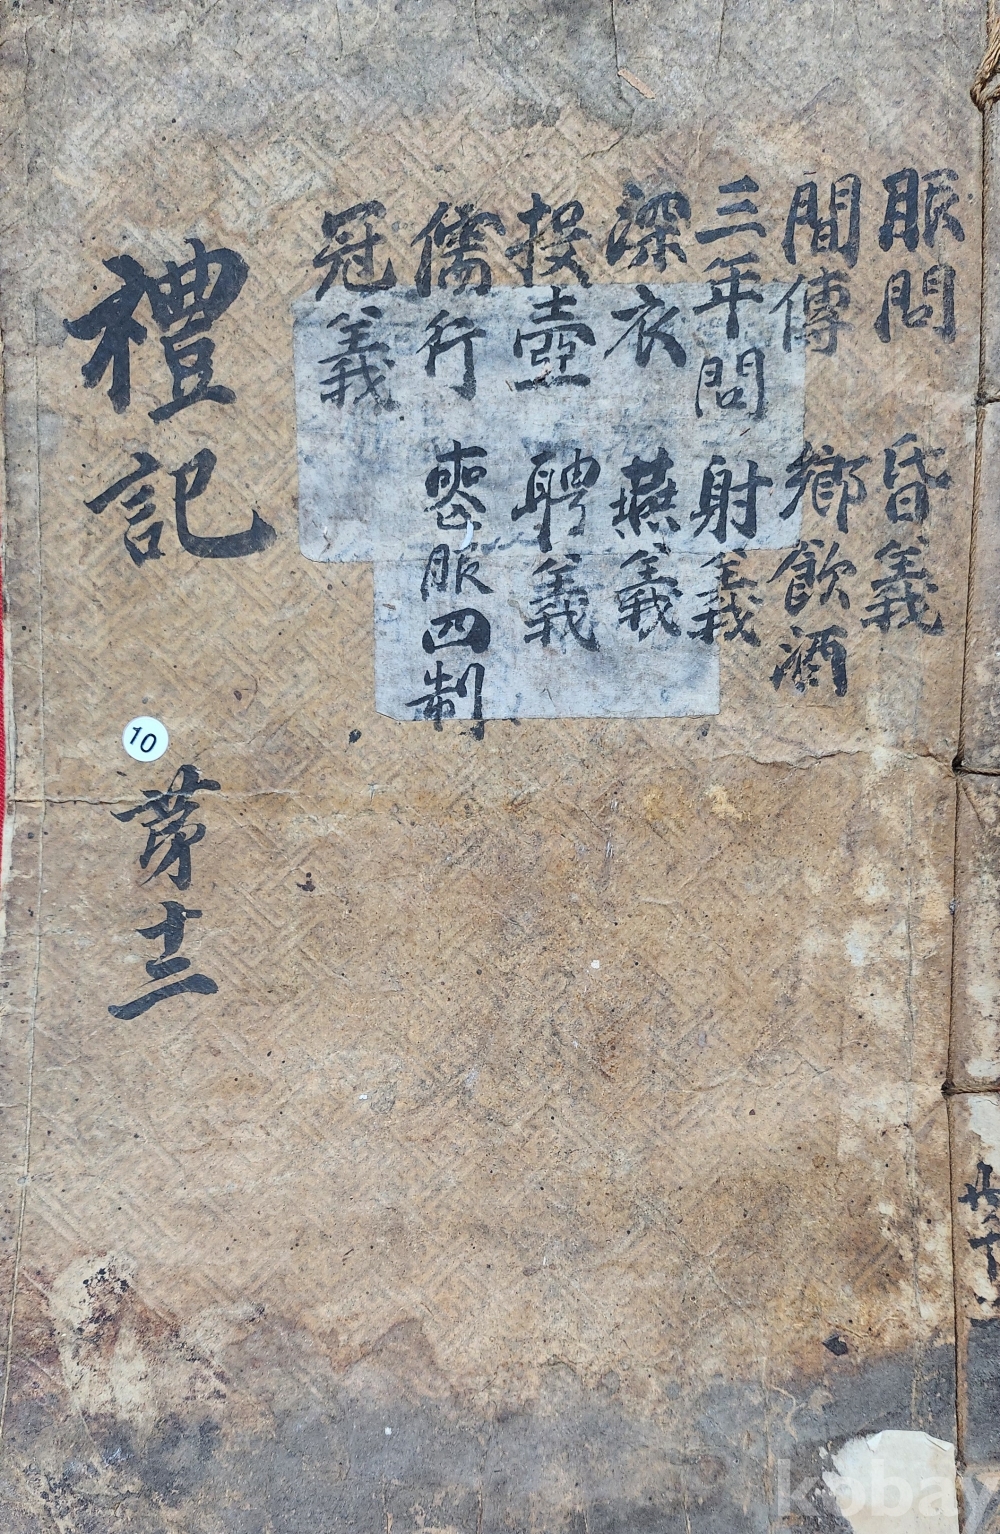 服問 昏義
間傳 鄉飮酒
三年問 射義
深衣 燕義
投壺 聘義
儒行 喪服四制
冠義
禮記 第十二
10
kobay